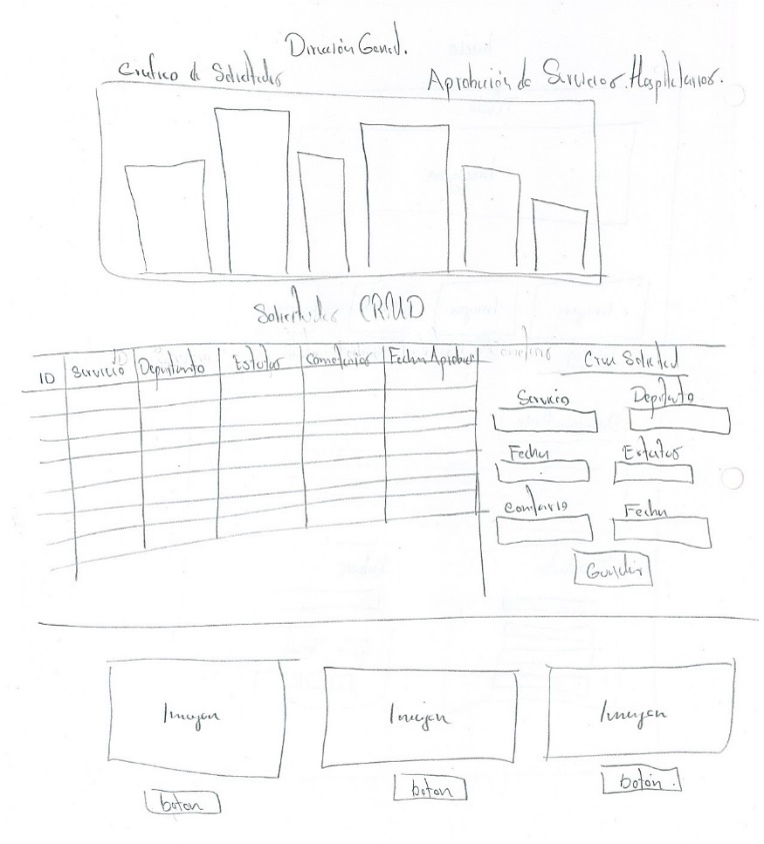 Dirección General.
Grafico de Solicitudes
Aprobación de Servicios Hospitalarios.
Solicitudes CRUD
ID Servicio Departamento Estatus Comentarios Fecha Aprobac
Crear Solicitud
Servicio Depto
Fecha Estatus
Comentario Fecha
Guardar
Imagen Imagen Imagen
boton boton boton.